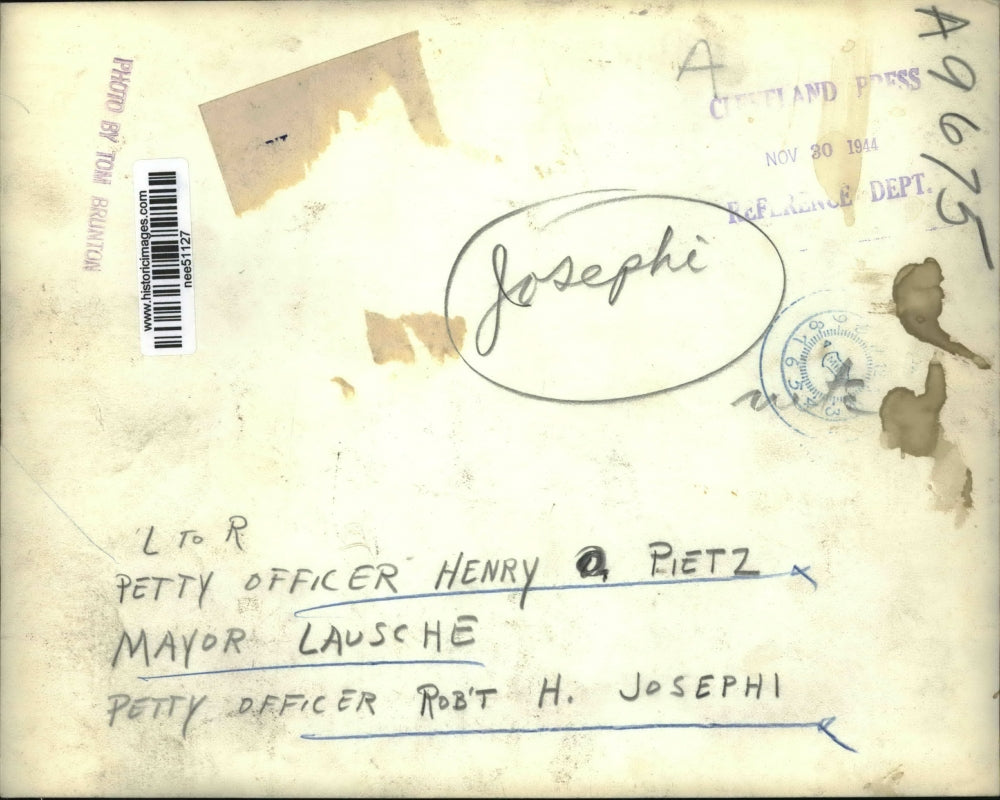 A
A9675
CLEVELAND PRESS
NOV 30 1944
REFERENCE DEPT.
PHOTO BY TOM BRUNTON
www.historicimages.com
nee51127
Josephi
L TO R
PETTY OFFICER HENRY O. PIETZ
MAYOR LAUSCHE
PETTY OFFICER ROB'T H. JOSEPHI